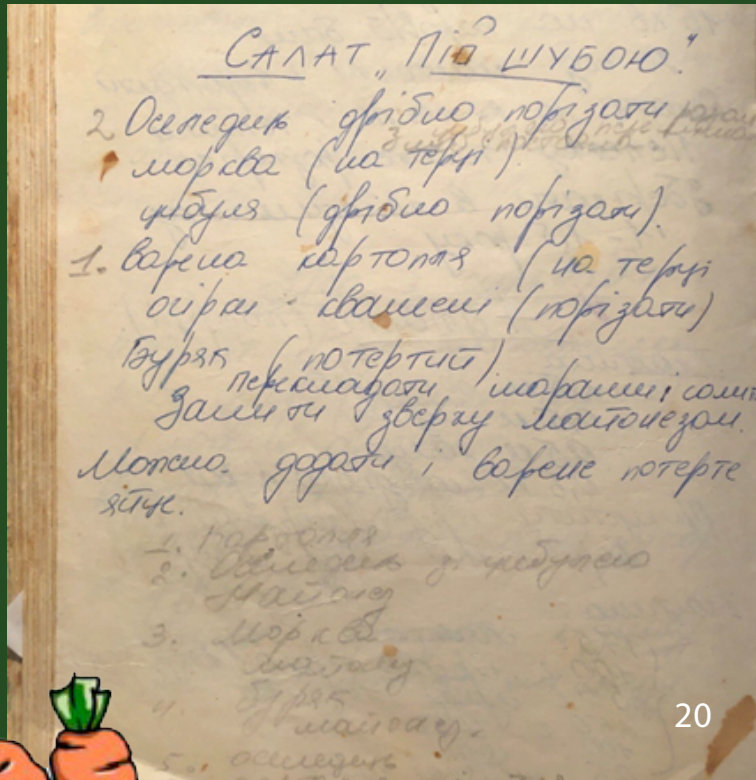 САЛАТ „ПІД ШУБОЮ".
2 Оселедиць дрібно порізати
морква (на терці).
цибуля (дрібно порізати).
1. варена картопля (на терці
огірки квашені (порізати)
Буряк (потертий)
перекладати шарами і солити
Залити зверху майонезом.
Можна додати і варене потерте
яйце.
1. Картопля
2. Оселедець з цибулею
Майонез
3. Морква
майонез
4. Буряк
майонез.
5. оселедець
20